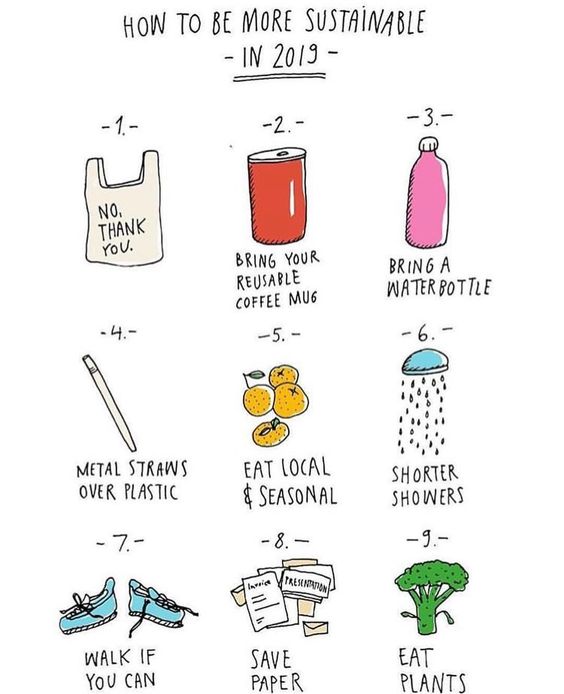 HOW TO BE MORE SUSTAINABLE
- IN 2019 -
- 1. -
NO,
THANK
YOU.
- 2. -
BRING YOUR
REUSABLE
COFFEE MUG
- 3. -
BRING A
WATERBOTTLE
- 4. -
METAL STRAWS
OVER PLASTIC
- 5. -
EAT LOCAL
& SEASONAL
- 6. -
SHORTER
SHOWERS
- 7. -
WALK IF
YOU CAN
- 8. -
Invoice
PRESENTATION
SAVE
PAPER
- 9. -
EAT
PLANTS